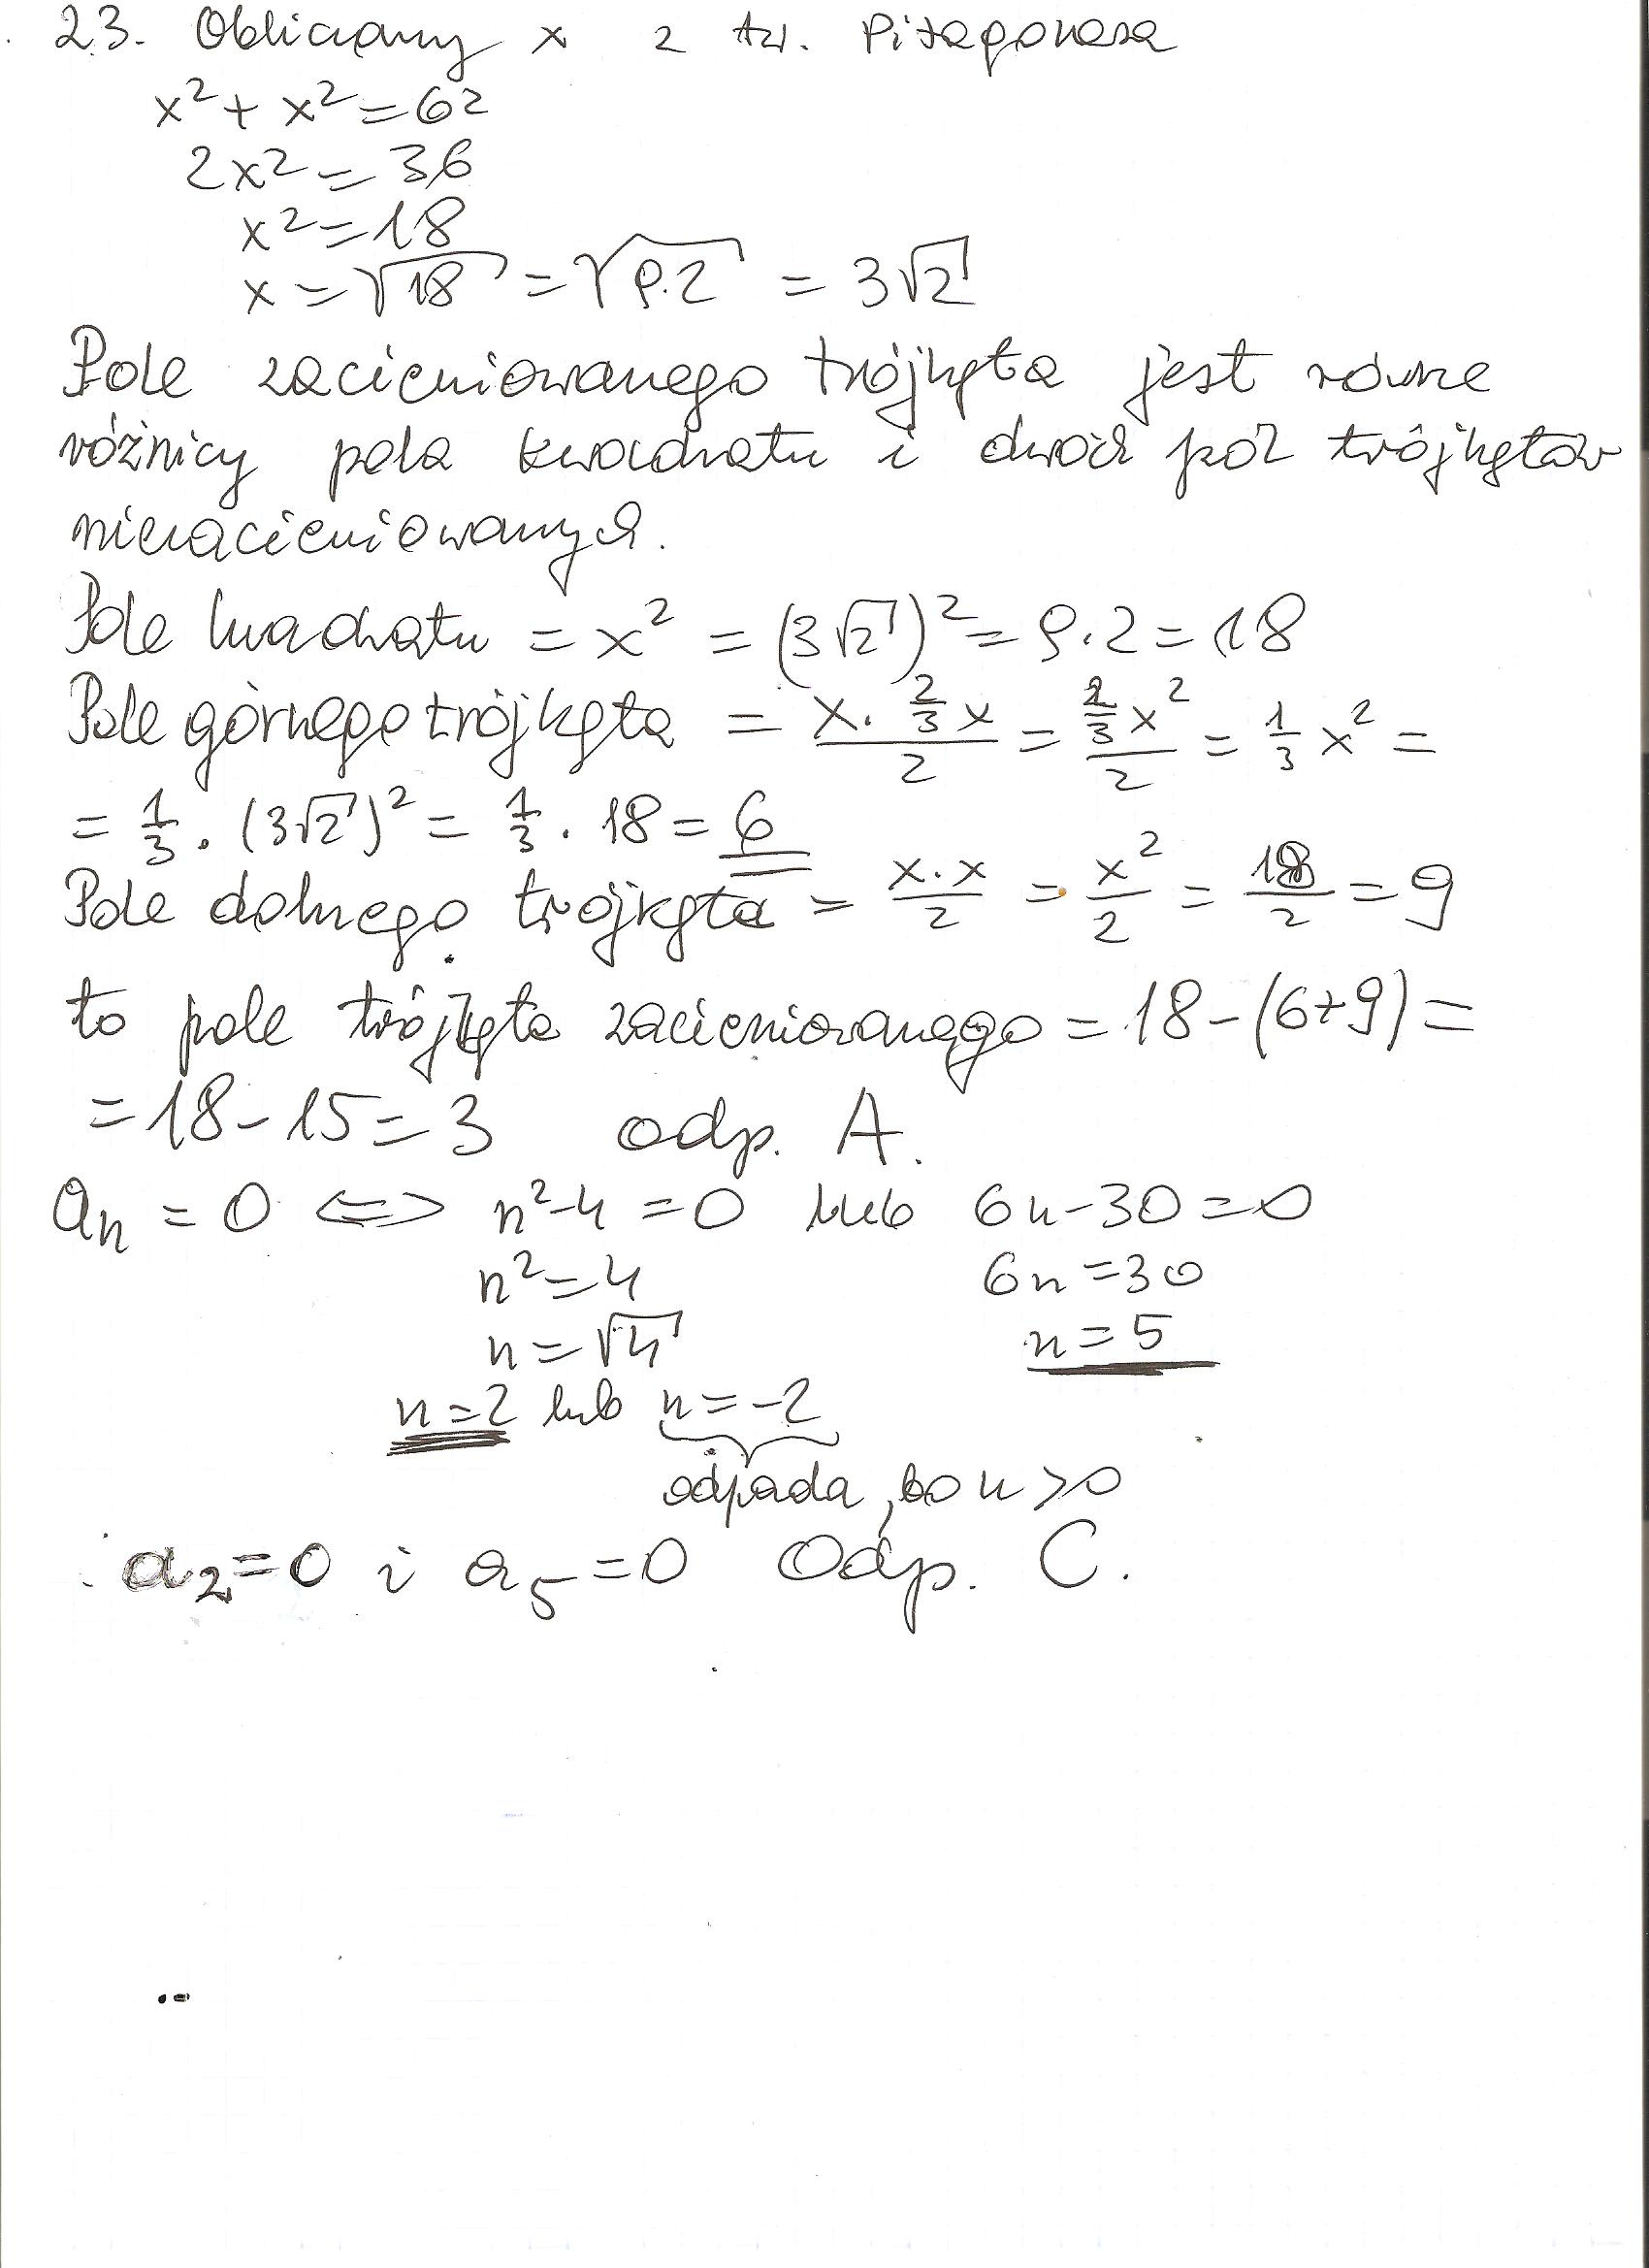 23. Obliczamy x z tw. Pitagorasa
x² + x² = 6²
2x² = 36
x² = 18
x = √18 = √9·2 = 3√2
Pole zacieniowanego trójkąta jest równe
różnicy pola kwadratu i dwóch pól trójkątów
niezacieniowanych.
Pole kwadratu = x² = (3√2)² = 9·2 = 18
Pole górnego trójkąta = (x · 2/3 x)/2 = (2/3 x²)/2 = 1/3 x² =
= 1/3 · (3√2)² = 1/3 · 18 = 6
Pole dolnego trójkąta = (x·x)/2 = x²/2 = 18/2 = 9
to pole trójkąta zacieniowanego = 18 - (6+9) =
= 18 - 15 = 3 odp. A.
aₙ = 0 ⇔ n² - 4 = 0 lub 6n - 30 = 0
n² = 4 6n = 30
n = √4 n = 5
n = 2 lub n = -2
odpada, bo n > 0
a₂ = 0 i a₅ = 0 Odp. C.